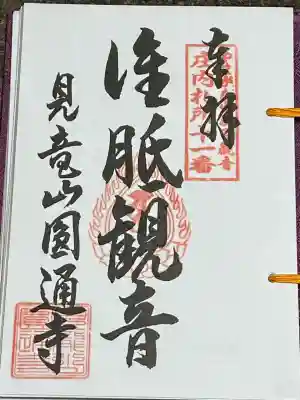 奉拝
庄内札所十一番
准胝観音
見竜山圓通寺